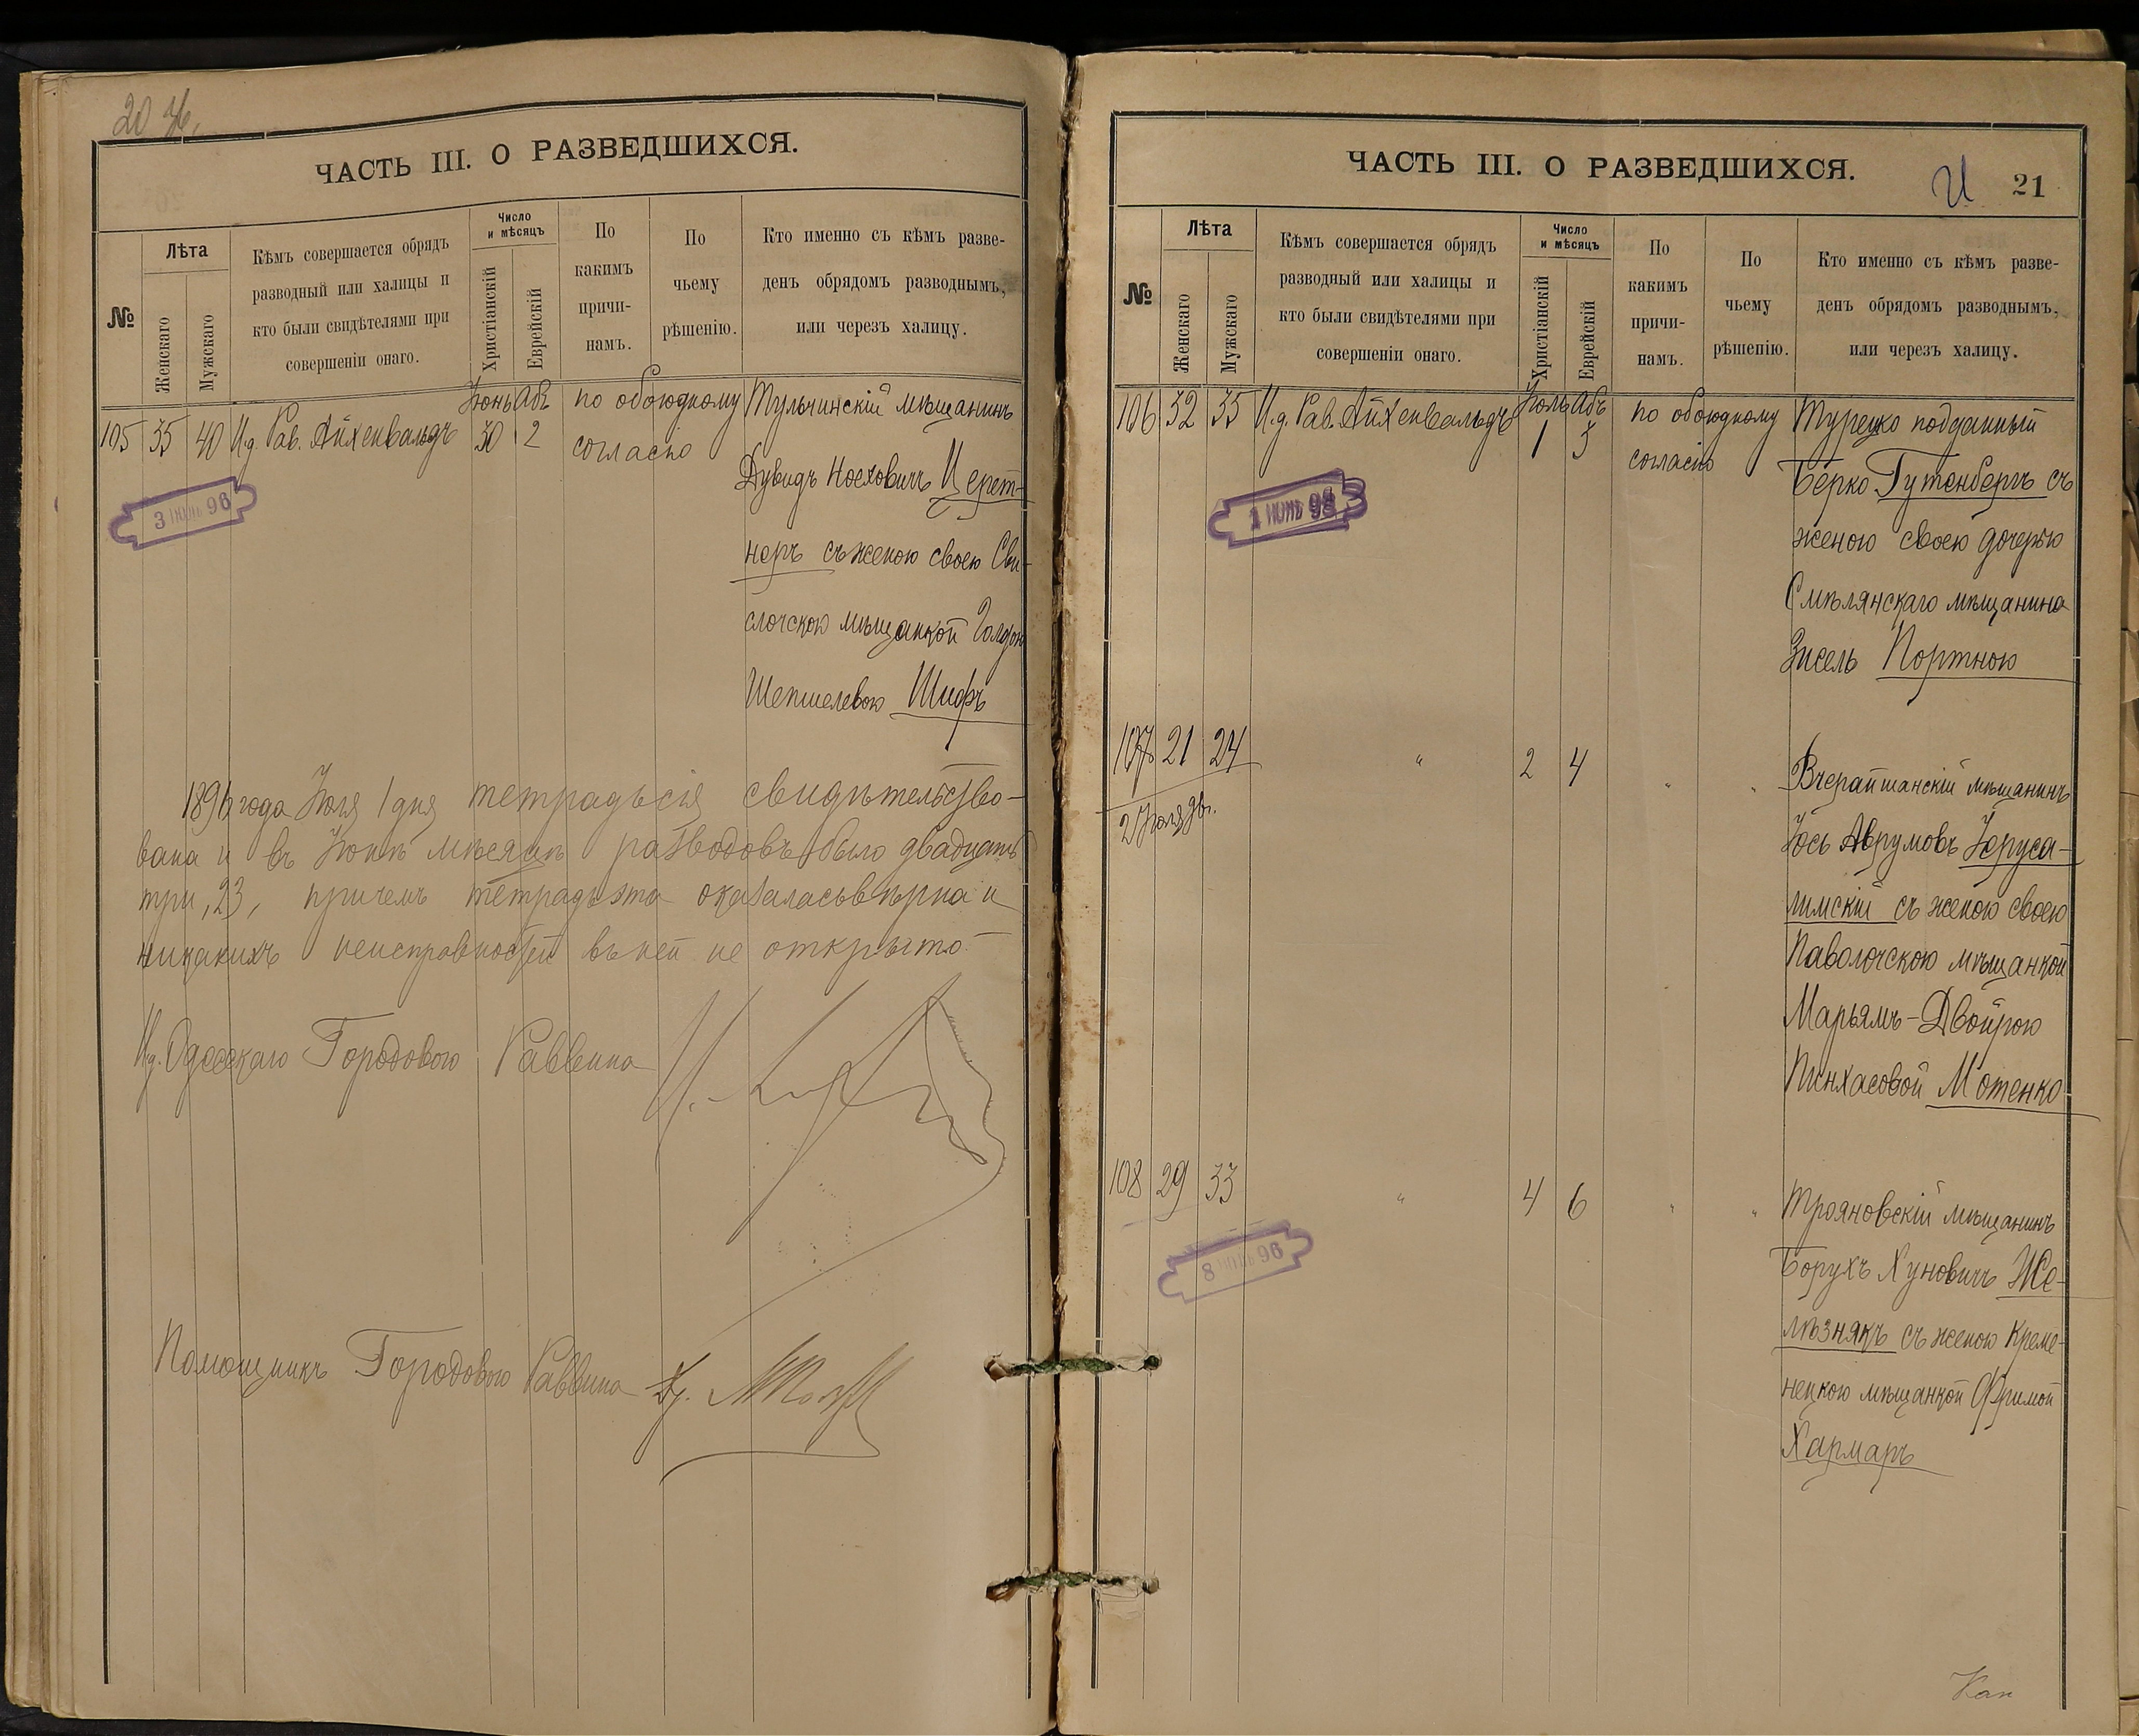 ЧАСТЬ III. О РАЗВЕДШИХСЯ.
№
Лѣта
Женскаго
Мужскаго
Кѣмъ совершается обрядъ
разводный или халицы и
кто были свидѣтелями при
совершеніи онаго.
Число
и мѣсяцъ
Христіанскій
Еврейскій
По
какимъ
причи-
намъ.
По
чьему
рѣшенію.
Кто именно съ кѣмъ разве-
денъ обрядомъ разводнымъ,
или черезъ халицу.
105 35 40 И.д. Рав. Айхенвальдъ
Іюнь Абъ
30 2
по обоюдному
согласію
Тульчинскій мѣщанинъ
Дувидъ Носховичъ Церет-
неръ съ женою своею Сви-
слочскою мѣщанкой Голдою
Шепшелевою Шифъ
3 ІЮЛЬ 96
1896 года Іюля 1 дня тетрадь сія свидѣтельство-
вана и въ Іюнѣ мѣсяцѣ разводовъ было двадцать
три, 23, причемъ тетрадь эта оказалась вѣрна и
никакихъ неисправностей въ ней не открыто
И.д. Одесскаго Городового Раввина
Помощникъ Городового Раввина
ЧАСТЬ III. О РАЗВЕДШИХСЯ.
21
№
Лѣта
Женскаго
Мужскаго
Кѣмъ совершается обрядъ
разводный или халицы и
кто были свидѣтелями при
совершеніи онаго.
Число
и мѣсяцъ
Христіанскій
Еврейскій
По
какимъ
причи-
намъ.
По
чьему
рѣшенію.
Кто именно съ кѣмъ разве-
денъ обрядомъ разводнымъ,
или черезъ халицу.
106 32 35 И.д. Рав. Айхенвальдъ
Іюль Абъ
1 3
по обоюдному
согласію
Турецко подданный
Берко Гутенбергъ съ
женою своею дочерью
Смѣлянскаго мѣщанина
Зисель Портною
107 21 24 " 2 4 " "
Вчерайшанскій мѣщанинъ
Іось Аврумовъ Іеруса-
лимскій съ женою своею
Паволочскою мѣщанкой
Марьямъ-Двойрою
Пинхасовой Мотенко
108 29 33 " 4 6 " "
8 ІЮЛЬ 96
Трояновскій мѣщанинъ
Борухъ Хуновичъ Же-
лѣзнякъ съ женою Креме-
нецкою мѣщанкой Фримой
Хармаръ